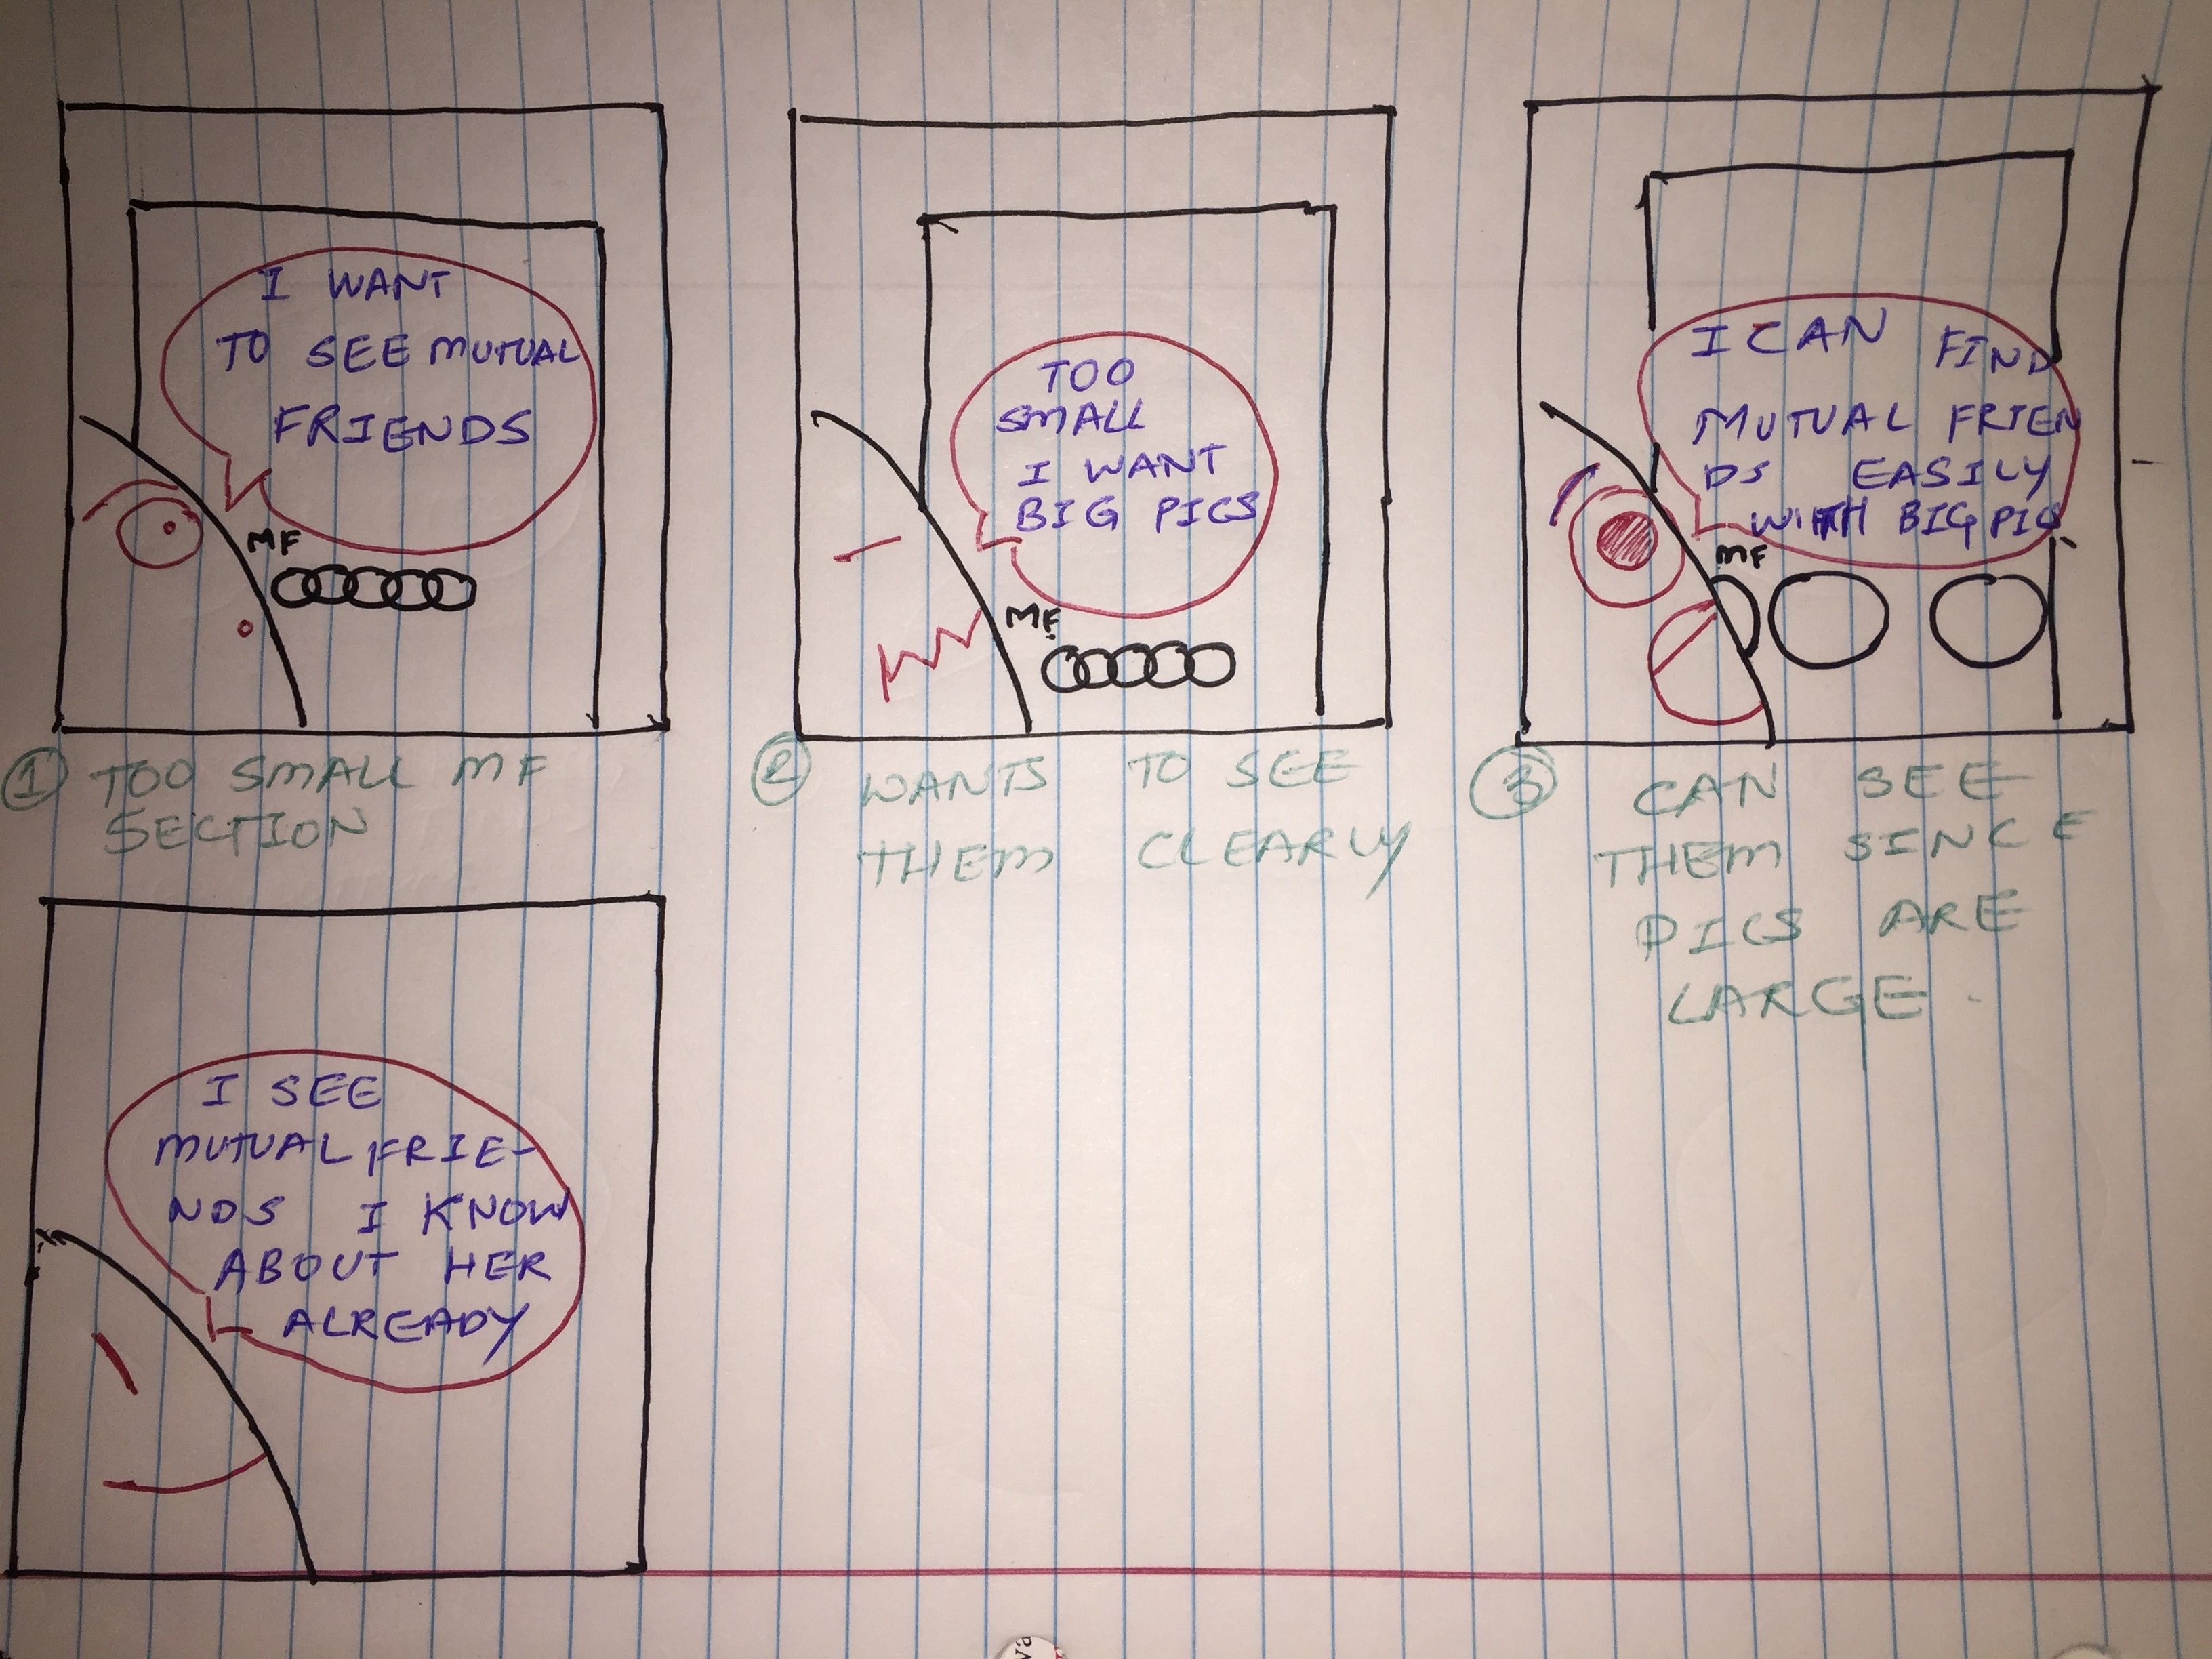 I WANT
TO SEE MUTUAL
FRIENDS
MF
① TOO SMALL MF
SECTION
TOO
SMALL
I WANT
BIG PICS
MF
② WANTS TO SEE
THEM CLEARLY
I CAN FIND
MUTUAL FRIEN
DS EASILY
WITH BIG PIC
MF
③ CAN SEE
THEM SINCE
PICS ARE
LARGE
I SEE
MUTUAL FRIE-
NDS I KNOW
ABOUT HER
ALREADY
va